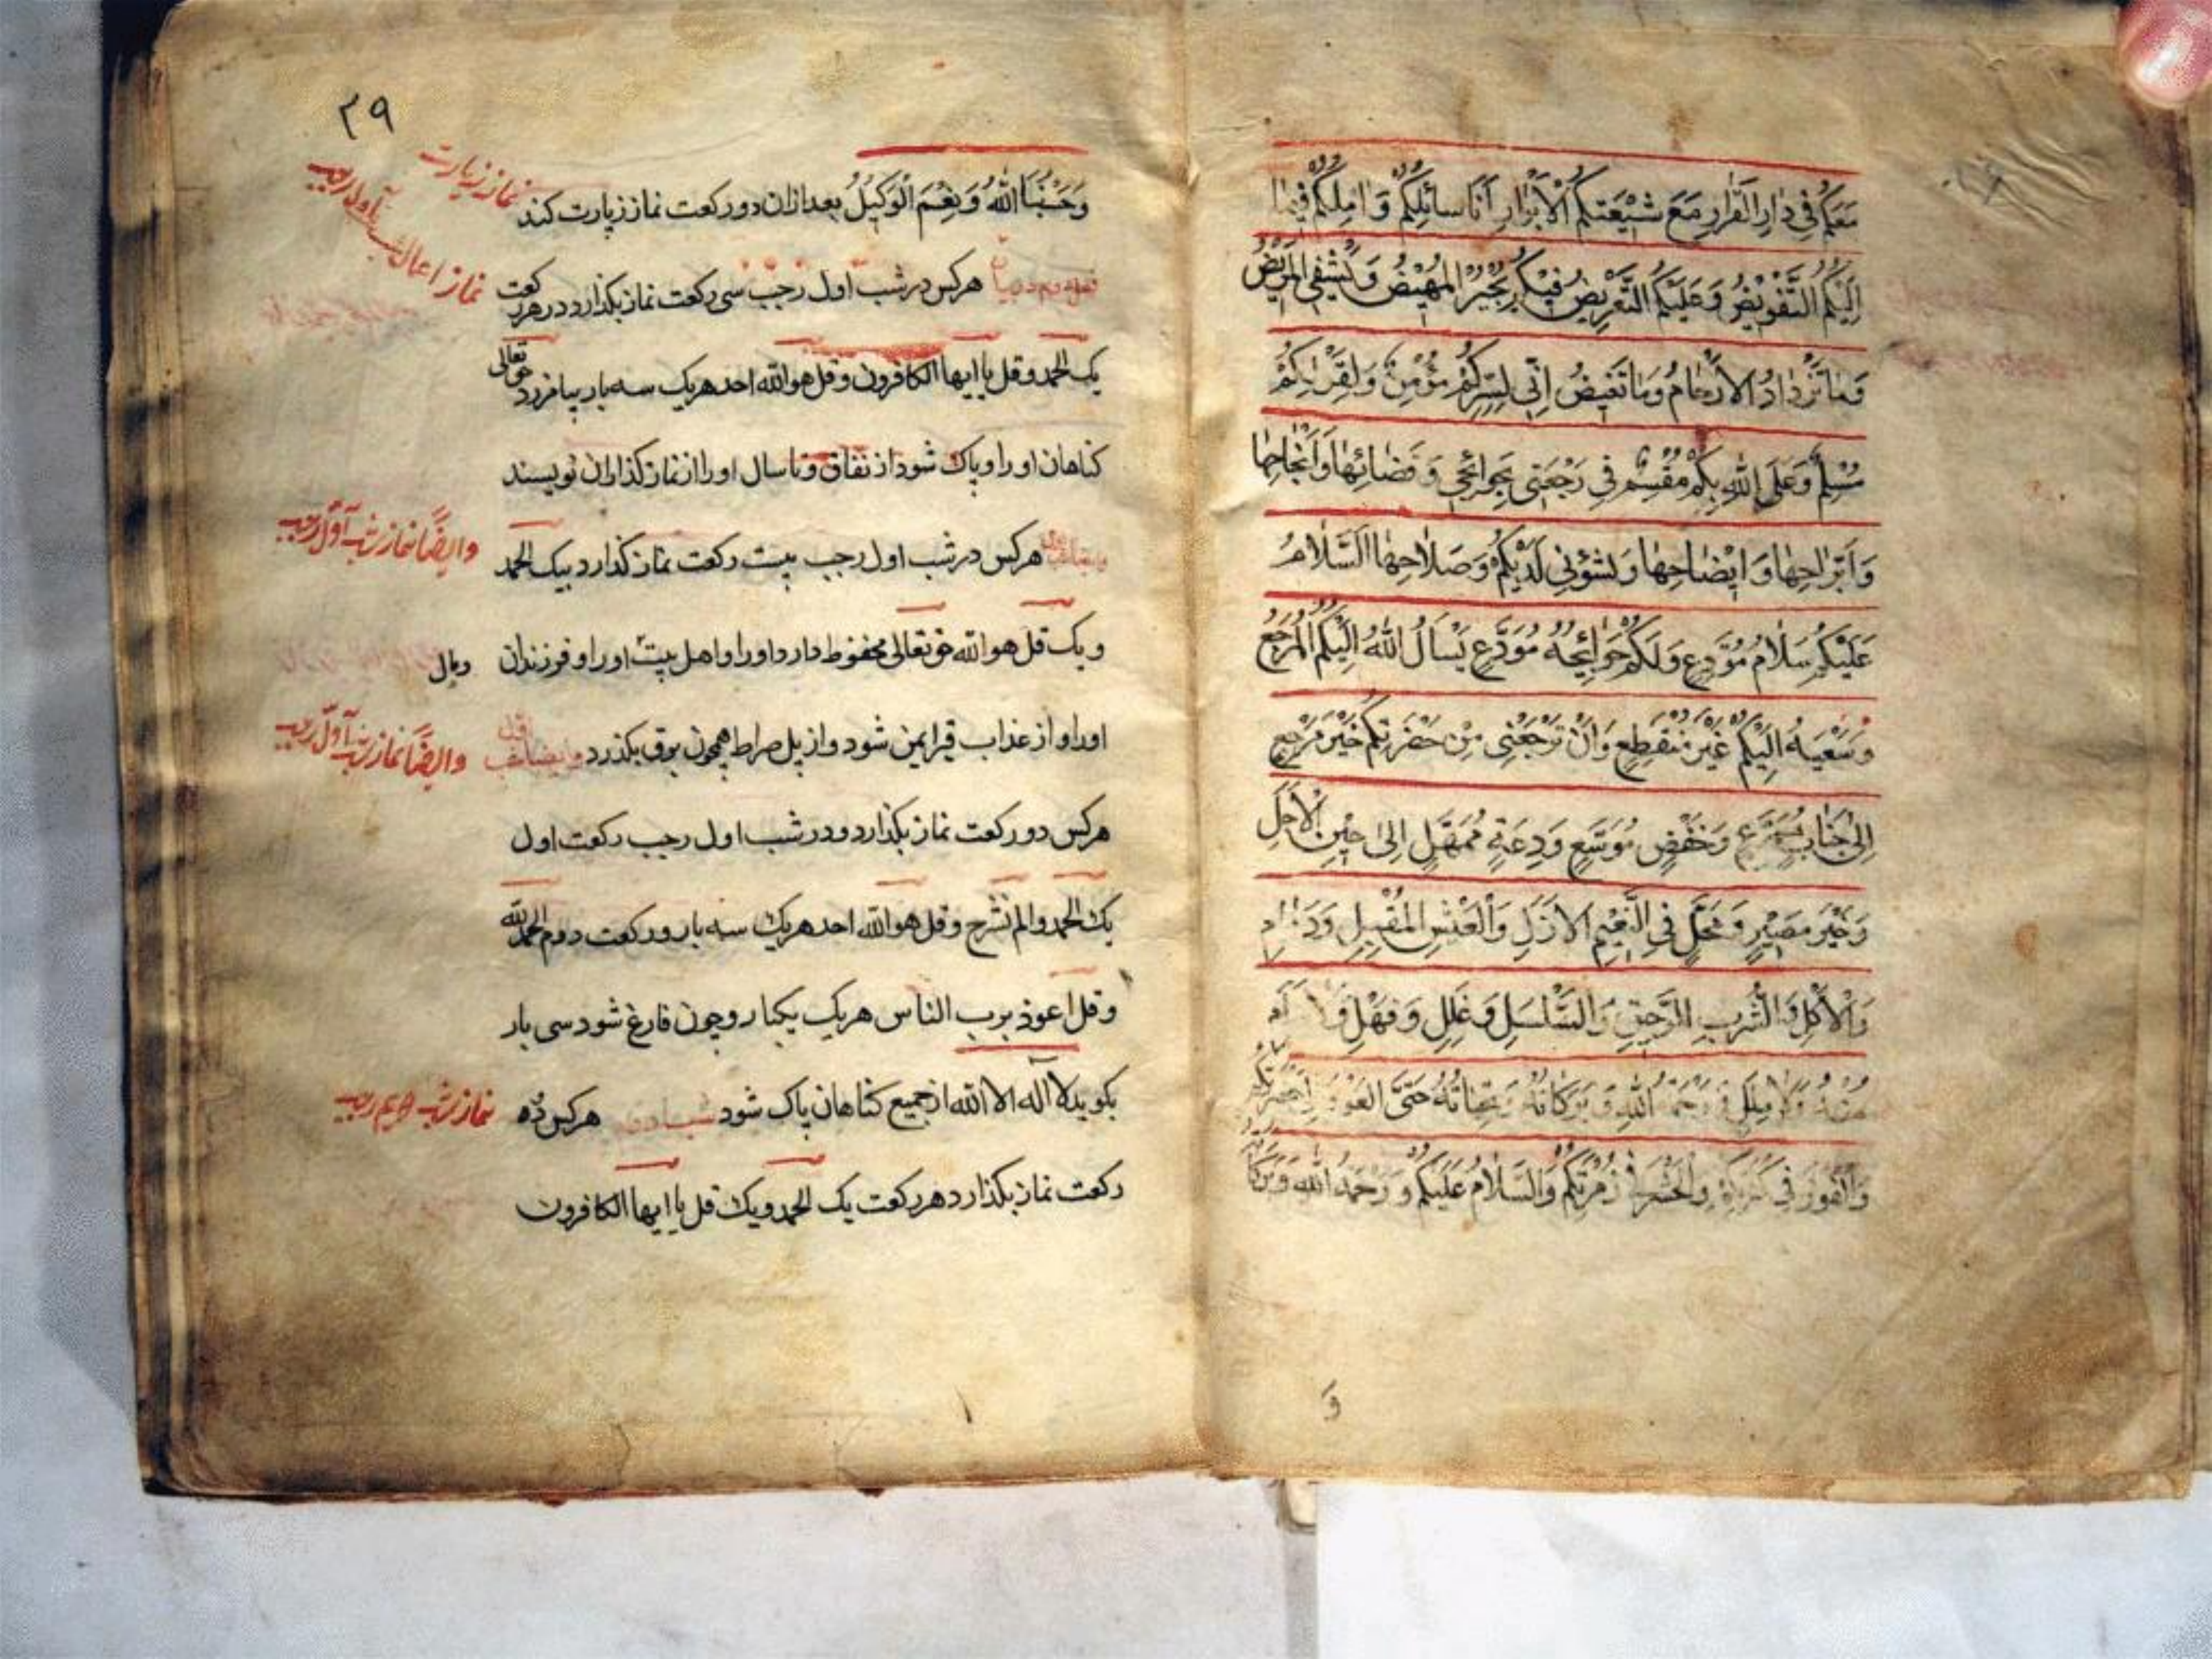 مَعَكُمْ فِي دارِ الْقَرارِ مَعَ شيْعَتِكُمُ الْأَبْرَارِ أَنَا سائِلُكُمْ وَ امِلُكُمْ فيما
اِلَيْكُمُ التَّفْويْضُ وَ عَلَيْكُمُ التَّعْريْضُ فَبِكُمْ يُجْبَرُ الْمَهيْضُ وَ يُشْفَى الْمَريْضُ
وَ مٰا تَزْدٰادُ الْاَرْحٰامُ وَ مٰا تَغيضُ اِنّي لِسِرِّكُمْ مُؤْمِنٌ وَ لِقَوْلِكُمْ
مُسَلِّمٌ وَ عَلَى اللهِ بِكُمْ مُقْسِمٌ في رَجْعَتي بِحَوائِجي وَ قَضٰائِهٰا وَ اِنْجٰاحِهٰا
وَ اِبْرٰاحِهٰا وَ ايْضٰاحِهٰا وَ بِشُؤُني لَدَيْكُمْ وَ صَلاٰحِهٰا السَّلاٰمُ
عَلَيْكُمْ سَلاٰمُ مُوَدِّعٍ وَ لَكُمْ حَوٰائِجُهُ مُوْدِعٍ يَسْأَلُ اللهَ اِلَيْكُمُ الْمَرْجِعُ
وَ سَعْيَهُ اِلَيْكُمْ غَيْرَ مُنْقَطِعٍ وَ اَنْ تَرْجَعَني مِنْ حَضْرَتِكُمْ خَيْرَ مَرْجِعٍ
اِلىٰ جَنٰابٍ مُمْرِعٍ وَ خَفْضٍ مُوَسَّعٍ وَ دِعَةٍ مُمَهَّلٍ اِلىٰ حيْنِ الْاَجَلِ
وَ خَيْرِ مَصيْرٍ وَ مَحَلٍّ فِي النَّعيْمِ الْاَزَلِ وَ الْعَيْشِ الْمُقْتَبِلِ وَ دَوٰامِ
وَ الْاُكُلِ وَ الشُّرْبِ الرَّحيقِ وَ السَّلْسَلِ وَ عَلَلٍ وَ نَهَلٍ
مِنْهُ وَ لاٰ مَلَلَ وَ رَحْمَةُ اللهِ وَ بَرَكاتُهُ وَ تَحِيّاتُهُ حَتَّى الْعَوْدِ اِلىٰ حَضْرَتِكُمْ
وَ الْفَوْزِ في كَرَّتِكُمْ وَ الْحَشْرِ في زُمْرَتِكُمْ وَ السَّلاٰمُ عَلَيْكُمْ وَ رَحْمَةُ اللهِ وَ بَرَكاٰ
وَ
٢٩
وَ حَسْبُنَا اللهُ وَ نِعْمَ الْوَكيْلُ بعد ازان دو ركعت نماز زيارت كند
نماز زيارت
نماز اعمال شب اول رجب
هركس در شب اول رجب سى ركعت نماز بكذارد در هر ركعت
يك الحمد و قل يا ايها الكافرون و قل هو الله احد هريك سه بار بيامرزد حق تعالى
كناهان او را و پاك شود از نفاق و تا سال او را از نماز كذاران نويسند
هركس در شب اول رجب بيست ركعت نماز كذارد بيك الحمد
وايضاً نماز شب اول رجب
و يك قل هو الله حق تعالى محفوظ دارد او را و اهل بيت او را و فرزندان
و مال
او را و از عذاب قبر ايمن شود و از پل صراط همچون برق بكذرد
وايضاً نماز شب اول رجب
هركس دو ركعت نماز بكذارد و در شب اول رجب ركعت اول
يك الحمد و الم نشرح و قل هو الله احد هريك سه بار و ركعت دوم الحمد لله
و قل اعوذ برب الناس هريك يكبار و چون فارغ شود سى بار
بكويد لا اله الا الله از جميع كناهان پاك شود هركس ده
نماز شب دويم رجب
ركعت نماز بكذارد هر ركعت يك الحمد و يك قل يا ايها الكافرون